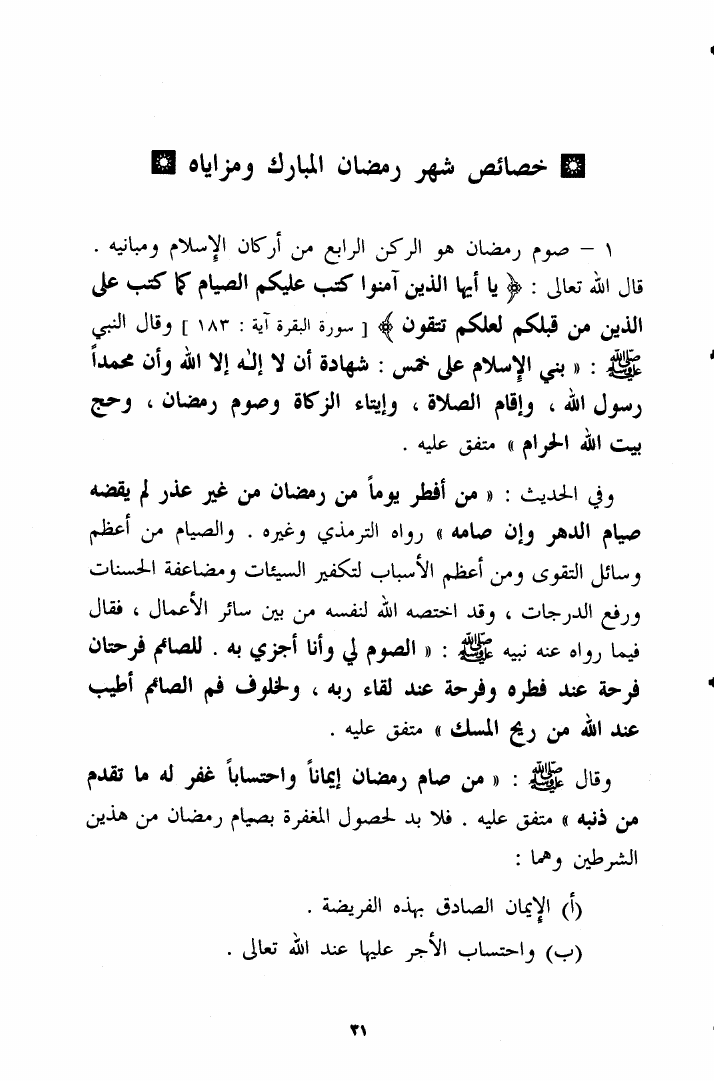 خصائص شهر رمضان المبارك ومزاياه
١ – صوم رمضان هو الركن الرابع من أركان الإسلام ومبانيه .
قال الله تعالى : ﴿ يا أيها الذين آمنوا كتب عليكم الصيام كما كتب على
الذين من قبلكم لعلكم تتقون ﴾ [ سورة البقرة آية : ١٨٣ ] وقال النبي
ﷺ : « بني الإسلام على خمس : شهادة أن لا إلـٰه إلا الله وأن محمداً
رسول الله ، وإقام الصلاة ، وإيتاء الزكاة وصوم رمضان ، وحج
بيت الله الحرام » متفق عليه .
وفي الحديث : « من أفطر يوماً من رمضان من غير عذر لم يقضه
صيام الدهر وإن صامه » رواه الترمذي وغيره . والصيام من أعظم
وسائل التقوى ومن أعظم الأسباب لتكفير السيئات ومضاعفة الحسنات
ورفع الدرجات ، وقد اختصه الله لنفسه من بين سائر الأعمال ، فقال
فيما رواه عنه نبيه ﷺ : « الصوم لي وأنا أجزي به . للصائم فرحتان
فرحة عند فطره وفرحة عند لقاء ربه ، ولخلوف فم الصائم أطيب
عند الله من ريح المسك » متفق عليه .
وقال ﷺ : « من صام رمضان إيماناً واحتساباً غفر له ما تقدم
من ذنبه » متفق عليه . فلا بد لحصول المغفرة بصيام رمضان من هذين
الشرطين وهما :
(أ) الإيمان الصادق بهذه الفريضة .
(ب) واحتساب الأجر عليها عند الله تعالى .
٣١